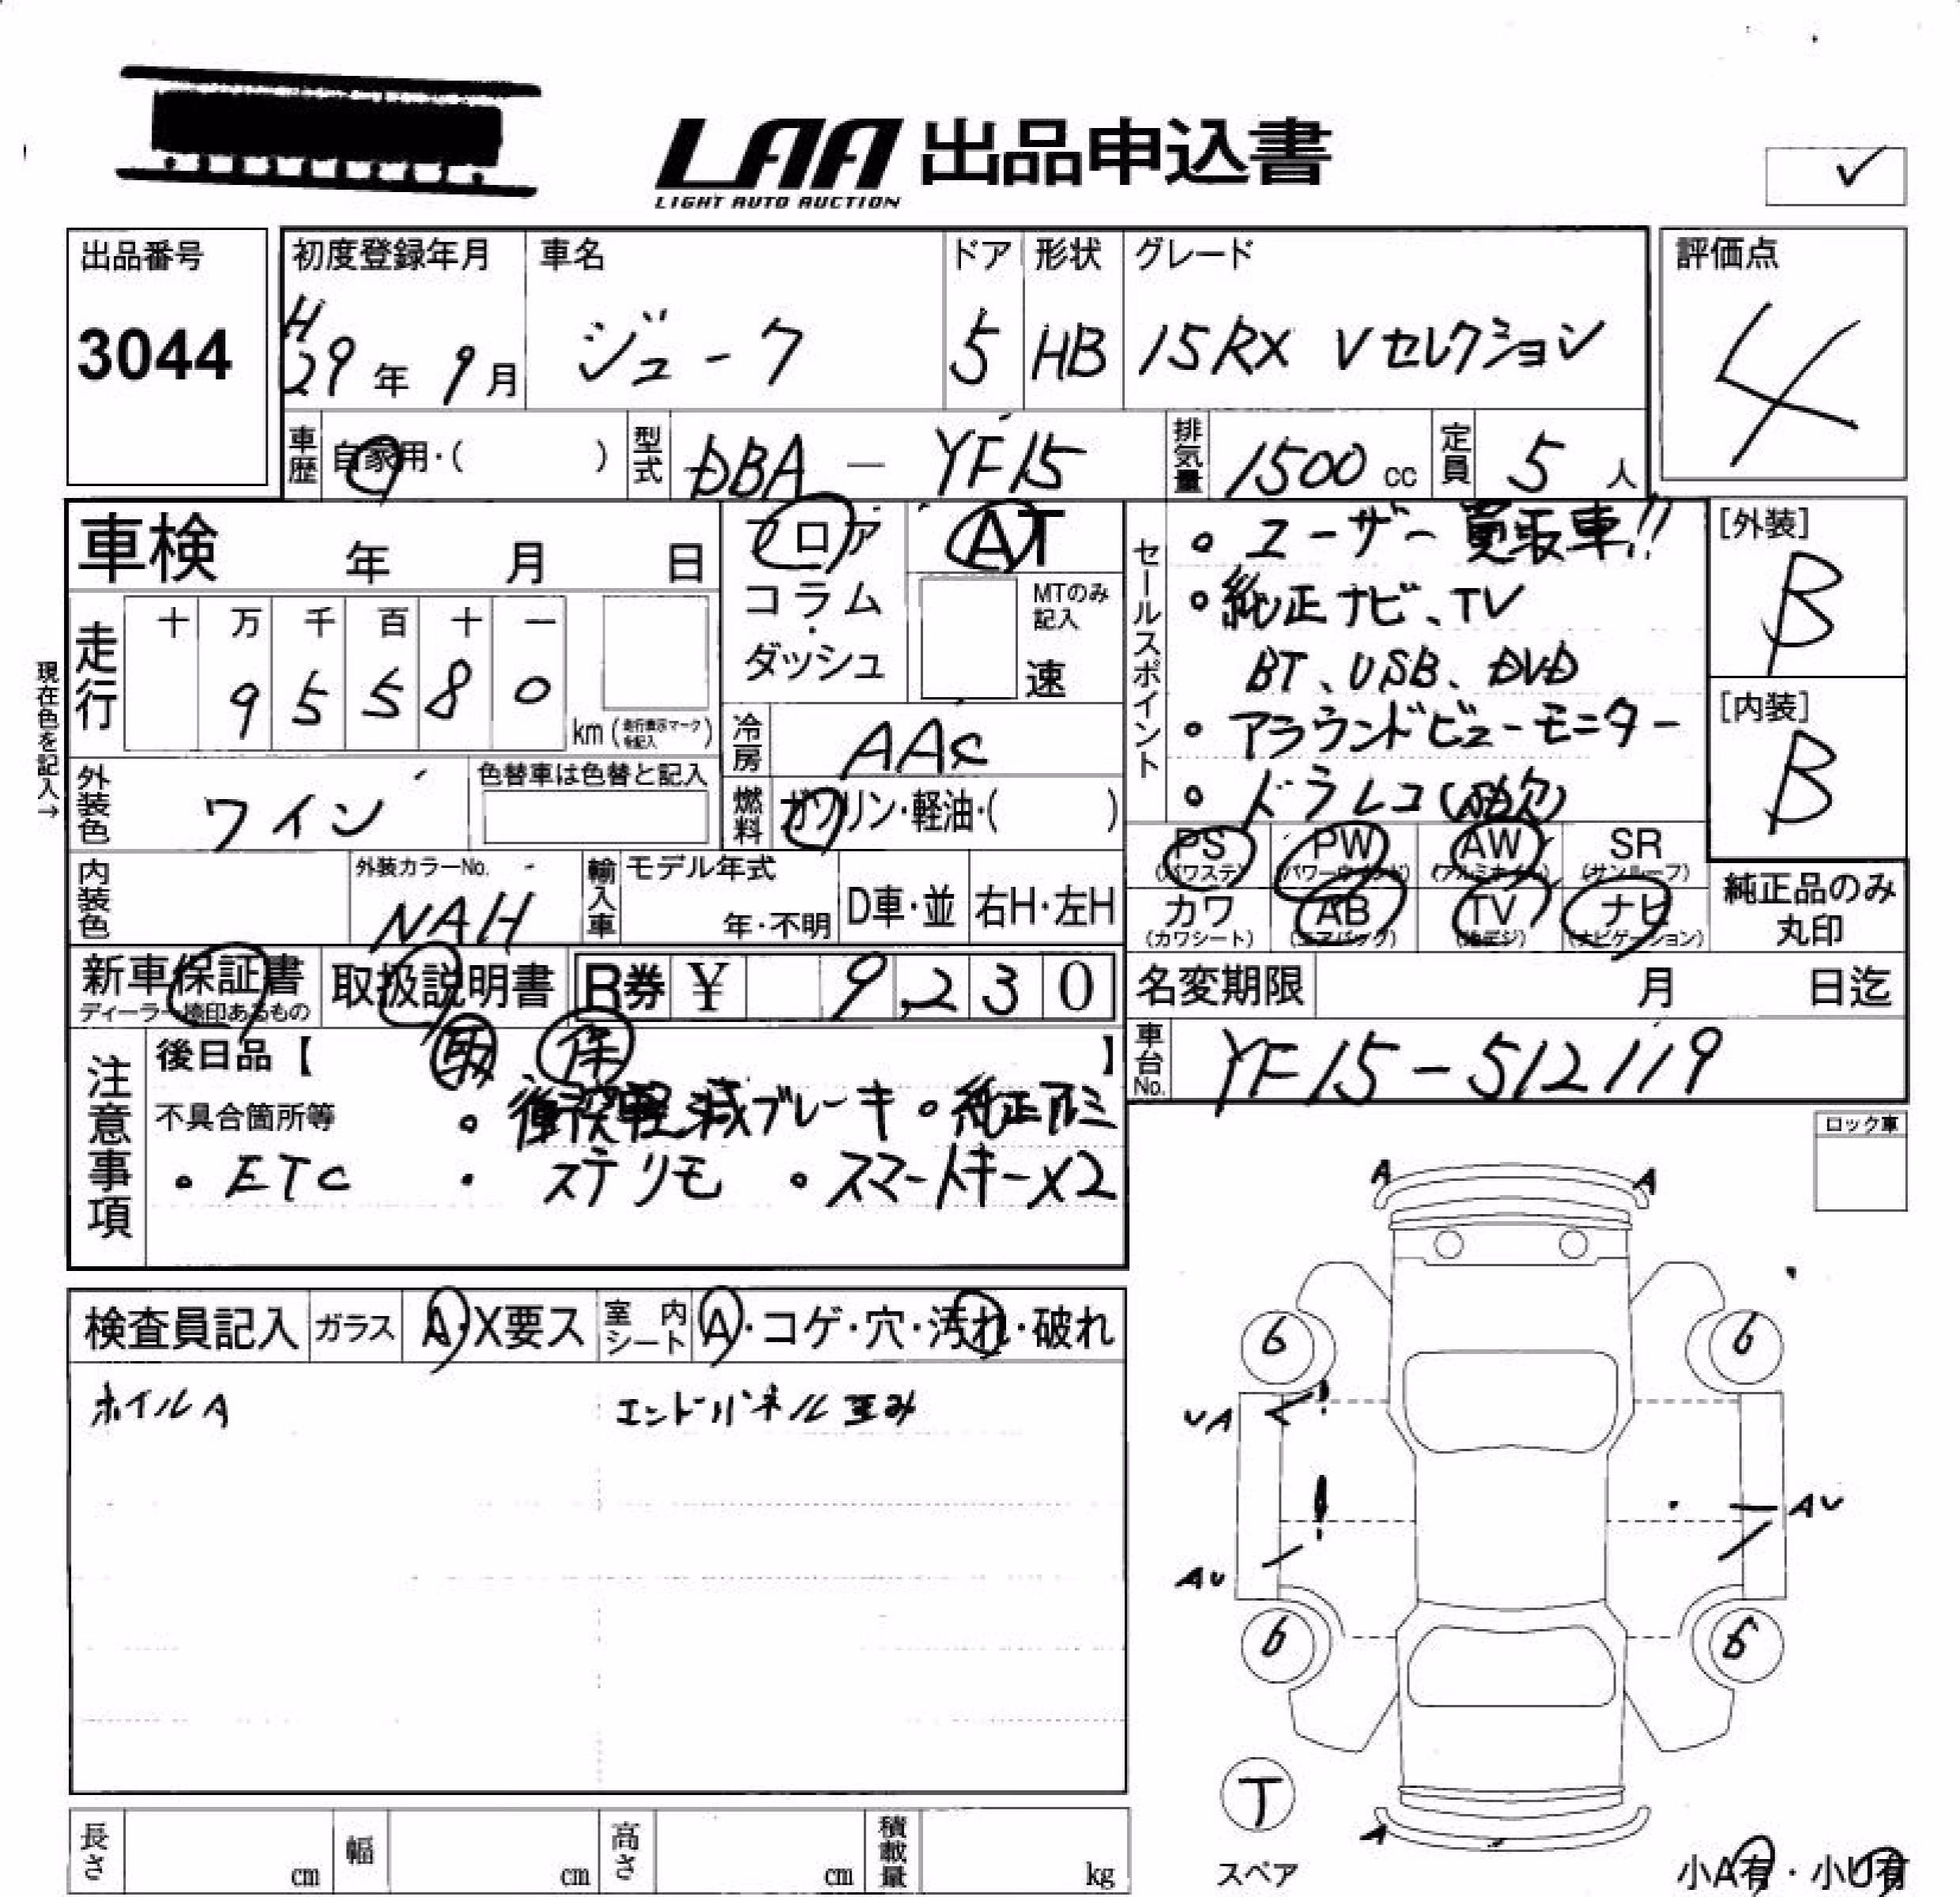 LAA 出品申込書
LIGHT AUTO AUCTION
✓
出品番号
3044
初度登録年月
H29年 9月
車名
ジューク
ドア
5
形状
HB
グレード
15RX Vセレクション
評価点
4
車歴
自家用・( )
型式
DBA - YF15
排気量
1500 cc
定員
5 人
車検 年 月 日
フロア
コラム
・
ダッシュ
AT
MTのみ
記入
速
セールスポイント
。ユーザー買取車!!
。純正ナビ、TV
BT、USB、DVD
。アラウンドビューモニター
。ドラレコ(
[外装]
B
[内装]
B
現在色を記入→
走行
十 万 千 百 十 一
9 5 5 8 0
km (走行表示マークを記入)
冷房
AAC
外装色
ワイン
色替車は色替と記入
燃料
ガソリン・軽油・( )
PS
(パワステ)
PW
(パワーウインド)
AW
(アルミホイル)
SR
(サンルーフ)
内装色
外装カラーNo.
NAH
輸入車
モデル年式
年・不明
D車・並
右H・左H
カワ
(カワシート)
AB
(エアバック)
TV
(地デジ)
ナビ
(ナビゲーション)
純正品のみ
丸印
新車保証書
ディーラー捺印あるもの
取扱説明書
R券 ¥ 9,230
名変期限 月 日迄
車台No.
YF15-512119
注意事項
後日品【 取 保 】
不具合箇所等 。衝突軽減ブレーキ 。純正アルミ
。ETC ・ステリモ 。スマートキーX2
ロック車
検査員記入
ガラス
A・X要ス
室内シート
A・コゲ・穴・汚れ・破れ
ホイルA
エンドパネル歪み
A A
6 6
UA
AU
AU
6 6
T
スペア
A
小A有・小U有
長さ cm
幅 cm
高さ cm
積載量 kg